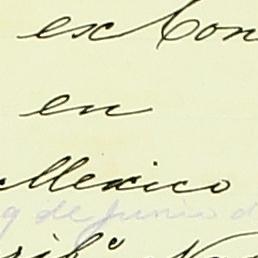 ex Con
en
Mexico
9 de Junio d